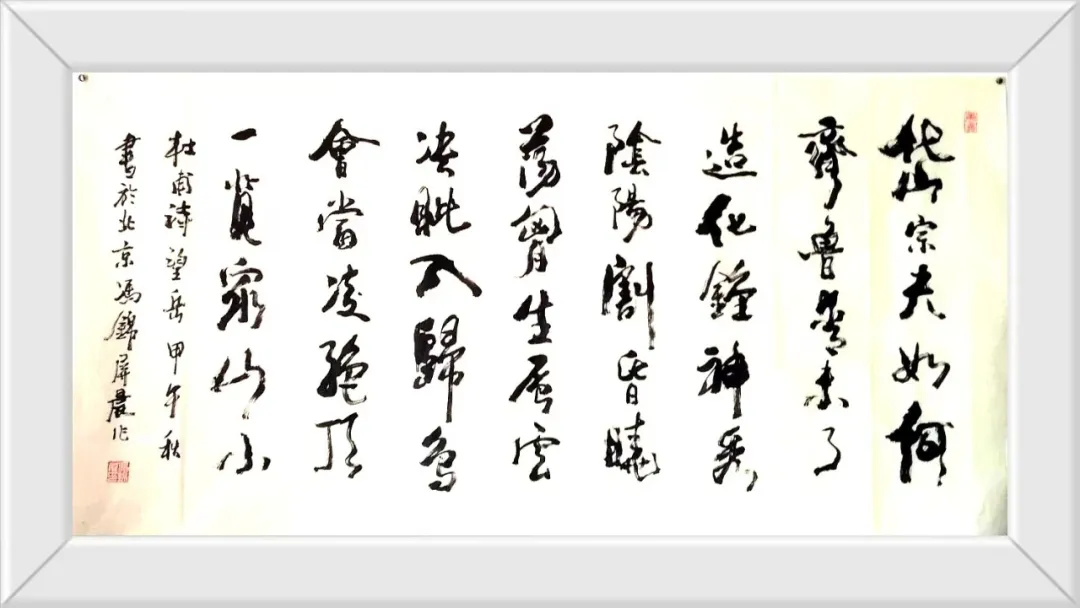 岱宗夫如何
齊魯青未了
造化鍾神秀
陰陽割昏曉
蕩胷生層雲
决眦入歸鳥
會當凌絶頂
一覽衆山小
杜甫詩望岳甲午秋
書於北京馮錦屏晨作